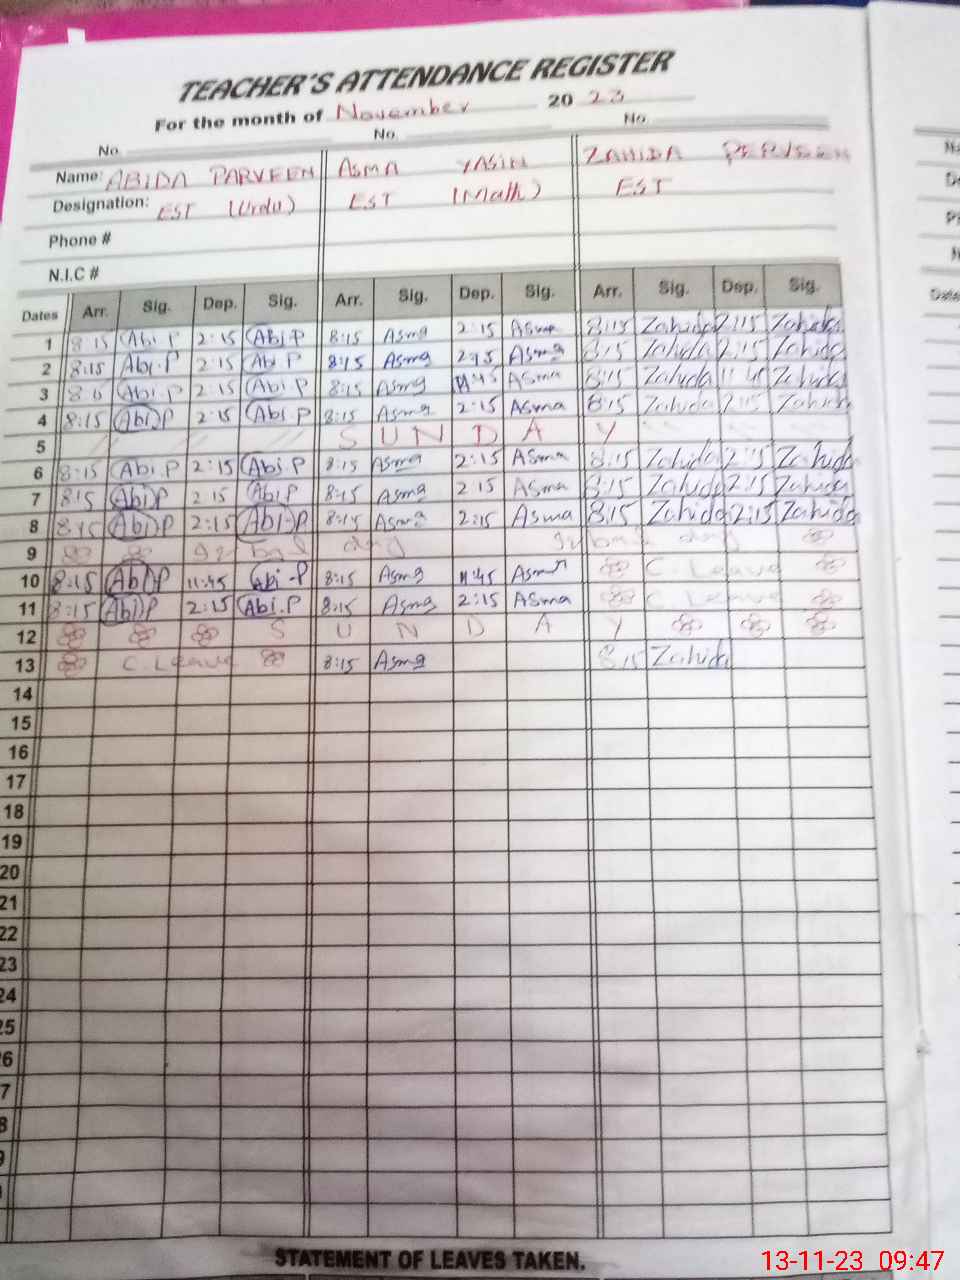 TEACHER'S ATTENDANCE REGISTER
For the month of November 20 23
No. No. No.
Name: ABIDA PARVEEN ASMA YASIN ZAHIDA PERVEEN
Designation: EST (Urdu) EST (Math) EST
Phone #
N.I.C #
Dates Arr. Sig. Dep. Sig. Arr. Sig. Dep. Sig. Arr. Sig. Dep. Sig.
1 8:15 Abi.P 2:15 Abi.P 8:15 Asma 2:15 Asma 8:15 Zahida 2:15 Zahida
2 8:15 Abi.P 2:15 Abi.P 8:15 Asma 2:15 Asma 8:15 Zahida 2:15 Zahida
3 Abi.P 2:15 Abi.P 8:15 Asma 11:45 Asma 8:15 Zahida 11:45 Zahida
4 8:15 Abi.P 2:15 Abi.P 8:15 Asma 2:15 Asma 8:15 Zahida 2:15 Zahida
5 S U N D A Y
6 8:15 Abi.P 2:15 Abi.P 8:15 Asma 2:15 Asma 8:15 Zahida 2:15 Zahida
7 8:15 Abi.P 2:15 Abi.P 8:15 Asma 2:15 Asma 8:15 Zahida 2:15 Zahida
8 8:15 Abi.P 2:15 Abi.P 8:15 Asma 2:15 Asma 8:15 Zahida 2:15 Zahida
9 Iqbal day Iqbal day
10 8:15 Abi.P 11:45 Abi.P 8:15 Asma 11:45 Asma C. Leave
11 8:15 Abi.P 2:15 Abi.P 8:15 Asma 2:15 Asma C. Leave
12 S U N D A Y
13 C. Leave 8:15 Asma 8:15 Zahida
14
15
16
17
18
19
20
21
22
23
24
25
6
7
8
9
STATEMENT OF LEAVES TAKEN.
13-11-23 09:47